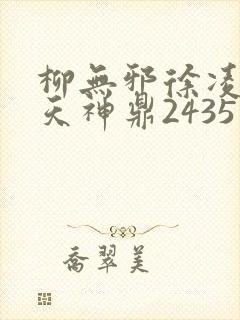 柳無邪徐凌
天神鼎2435
喬翠美